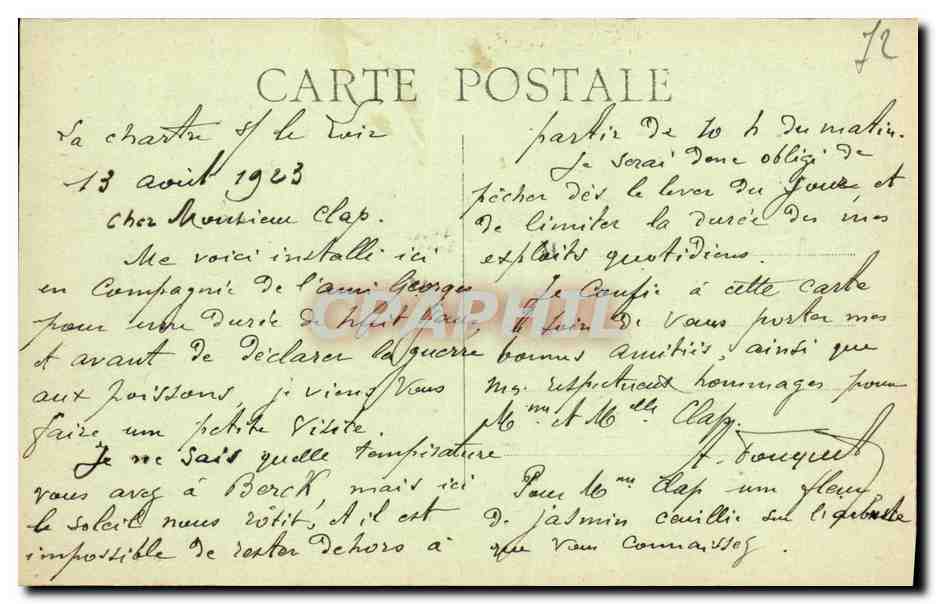 72
CARTE POSTALE
La chartre s/ le Loir
13 août 1923
Cher Monsieur Clap.
Me voici installé ici
en compagnie de l'ami Georges
pour une durée de huit jours,
et avant de déclarer la guerre
aux poissons, je viens vous
faire une petite visite.
Je ne sais quelle température
vous avez à Berck, mais ici
le soleil nous rôtit, et il est
impossible de rester dehors à
partir de 10 h du matin.
Je serai donc obligé de
pêcher dès le lever du jour et
de limiter la durée des mes
exploits quotidiens.
Je confie à cette carte
le soin de vous porter mes
bonnes amitiés, ainsi que
mes respectueux hommages pour
Mme et Melle Clap.
A. Fouquet
Pour Mme Clap une fleur
de jasmin cueillie sur l'arbuste
que vous connaissez.
CPAPHIL